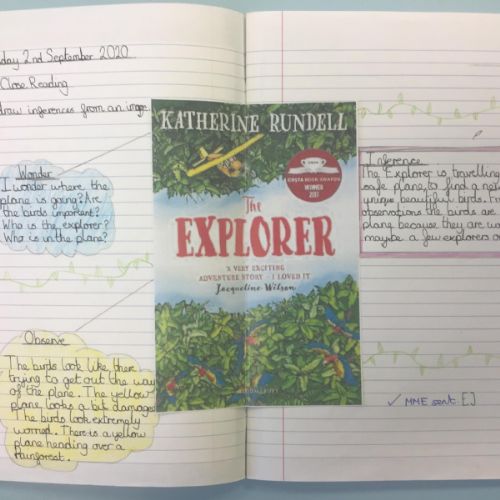 day 2nd September 2020
Close Reading
draw inferences from an image.
Wonder
I wonder where the
plane is going? Are
the birds important?
Who is the explorer?
Who is in the plane?
Observe
The birds look like their
trying to get out the way
of the plane. The yellow
plane looks a bit damaged
The birds look extremely
worried. There is a yellow
plane heading over a
rainforest.
KATHERINE RUNDELL
COSTA BOOK AWARDS
WINNER
2017
The
EXPLORER
'A VERY EXCITING
ADVENTURE STORY - I LOVED IT'
Jacqueline Wilson
Inference
The Explorer is travelling
safe plane, to find a
unique beautiful birds.
observations the birds are
plane because they are
maybe a few explorers
✓ MME sent. []